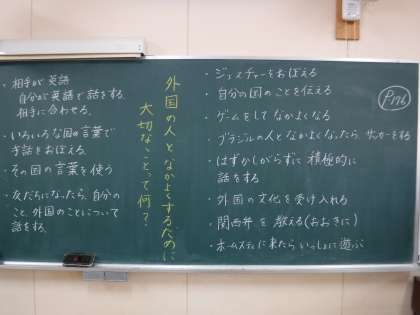 ・相手が英語
自分が英語で話をする。
相手に合わせる。
・いろいろな国の言葉で
手話をおぼえる。
・その国の言葉を使う
・友だちになったら、自分の
こと、外国のことについて
話をする。
外国の人となかよくするために
大切なことって何？
・ジェスチャーをおぼえる
・自分の国のことを伝える
・ゲームをしてなかよくなる
・ブラジルの人となかよくなったら、サッカーをする
・はずかしがらずに積極的に
話をする
・外国の文化を受け入れる
・関西弁を教える(おおきに)
・ホームステイに来たらいっしょに遊ぶ